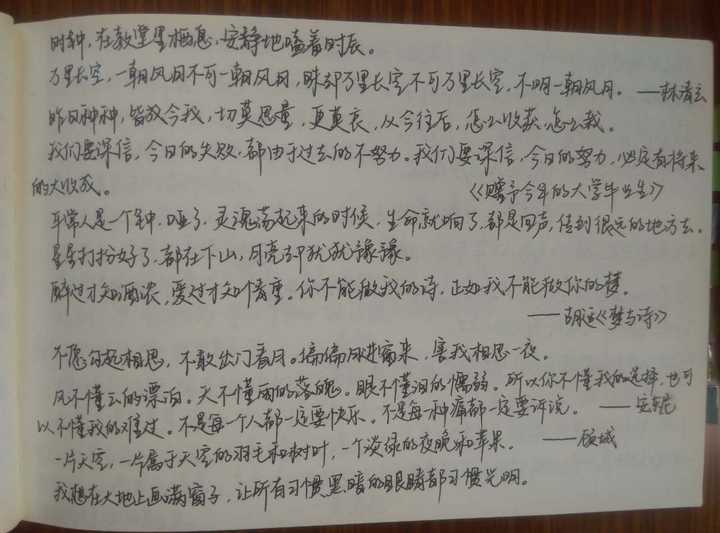 时钟，在教堂里栖息，安静地嗑着时辰。
万里长空，一朝风月不可一朝风月，昧却万里长空不可万里长空，不明一朝风月。——林清玄
昨日种种，皆成今我，切莫思量，更莫哀，从今往后，怎么收获，怎么栽。
我们要深信，今日的失败，都由于过去的不努力。我们要深信，今日的努力，必定有将来
的大收成。
《赠予今年的大学毕业生》
平常人是一个钟，哑了，灵魂荡起来的时候，生命就响了，都是回声，传到很远的地方去。
星星打扮好了，都在下山，月亮却犹犹豫豫。
醉过才知酒浓，爱过才知情重。你不能做我的诗，正如我不能做你的梦。
——胡适《梦与诗》
不愿勾起相思，不敢出门看月。偏偏月进窗来，害我相思一夜。
风不懂云的漂泊。天不懂雨的落魄。眼不懂泪的懦弱。所以你不懂我的选择，也可
以不懂我的难过。不是每一个人都一定要快乐。不是每一种痛都一定要诉说。——安东尼
一片天空，一片属于天空的羽毛和树叶，一个淡绿的夜晚和苹果。——顾城
我想在大地上画满窗子，让所有习惯黑暗的眼睛都习惯光明。